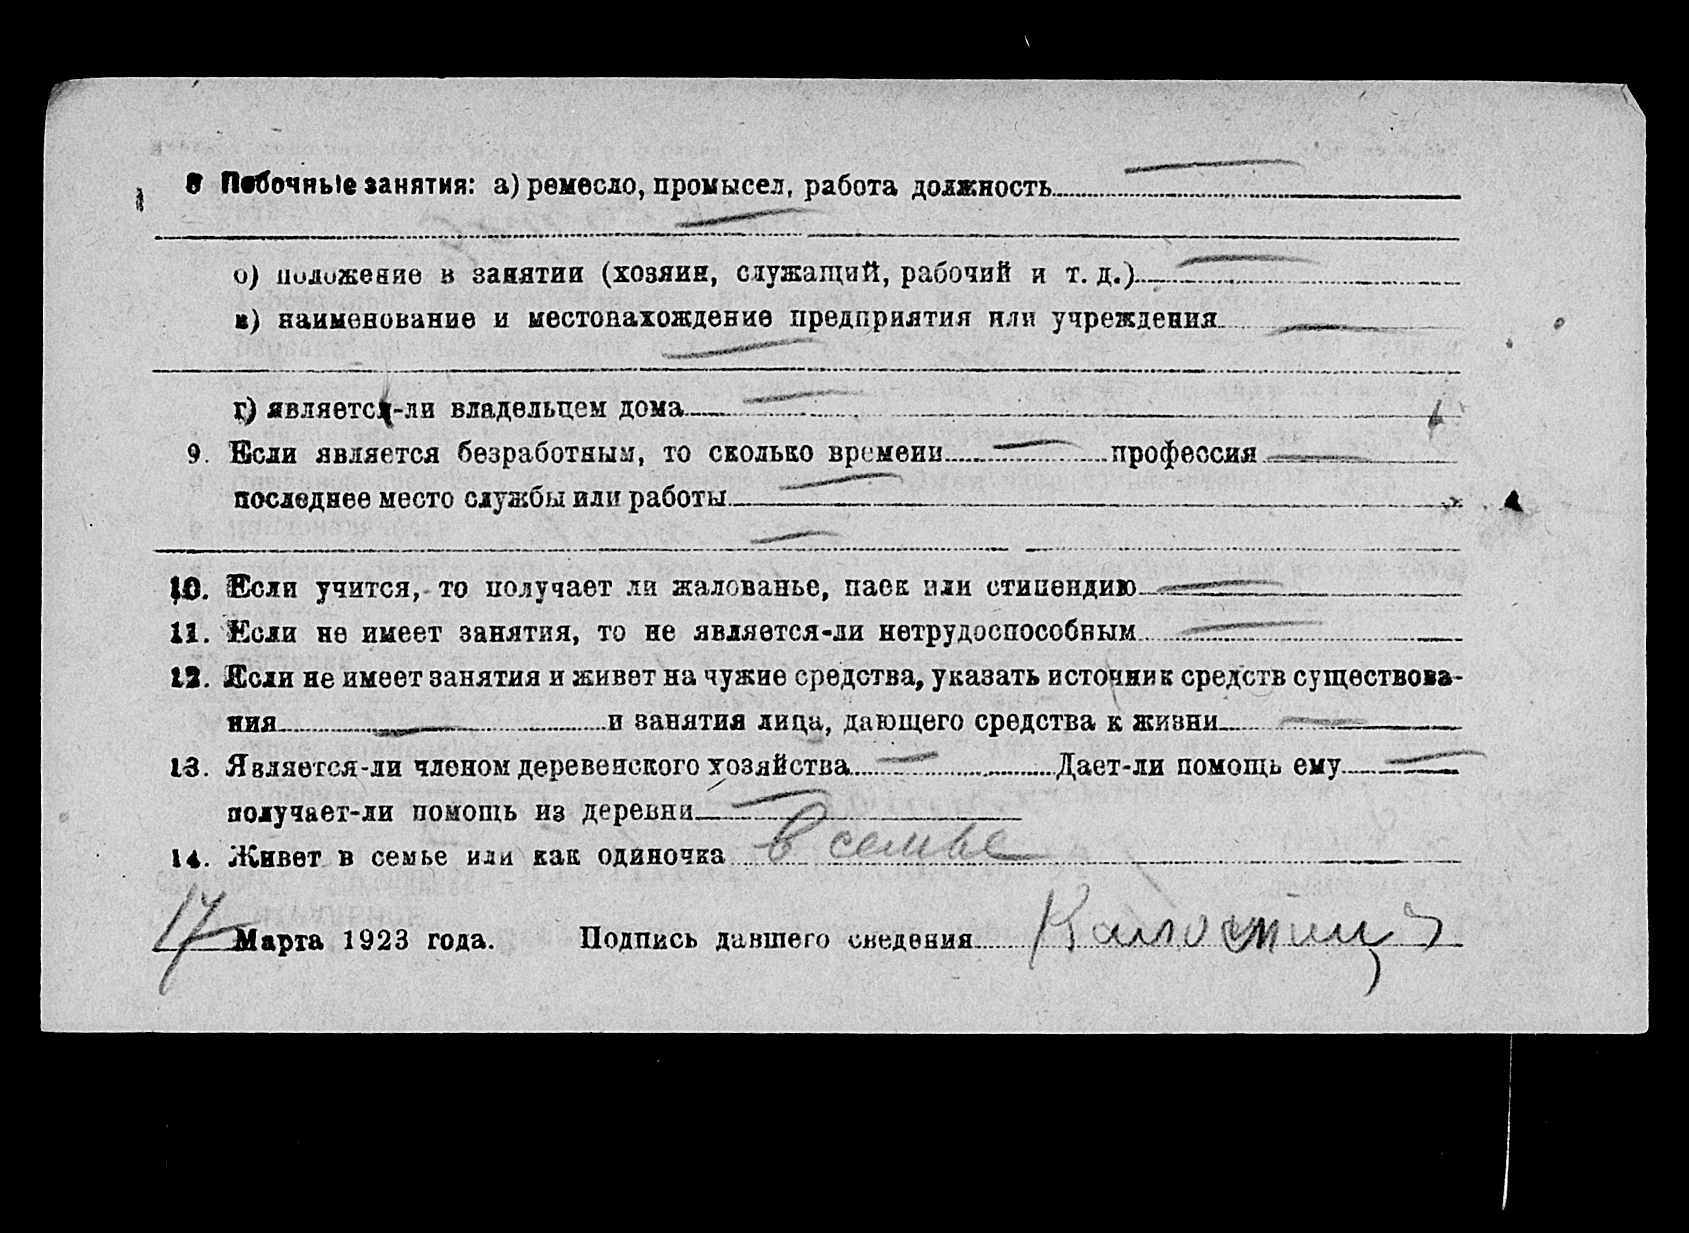 8 Побочные занятия: а) ремесло, промысел, работа должность —
—
б) положение в занятии (хозяин, служащий, рабочий и т. д.) —
в) наименование и местонахождение предприятия или учреждения —
—
г) является-ли владельцем дома —
9. Если является безработным, то сколько времени — профессия —
последнее место службы или работы —
—
10. Если учится, то получает ли жалованье, паек или стипендию —
11. Если не имеет занятия, то не является-ли нетрудоспособным —
12. Если не имеет занятия и живет на чужие средства, указать источник средств существова-
ния — и занятия лица, дающего средства к жизни —
13. Является-ли членом деревенского хозяйства — Дает-ли помощь ему —
получает-ли помощь из деревни —
14. Живет в семье или как одиночка в семье
17 Марта 1923 года. Подпись давшего сведения